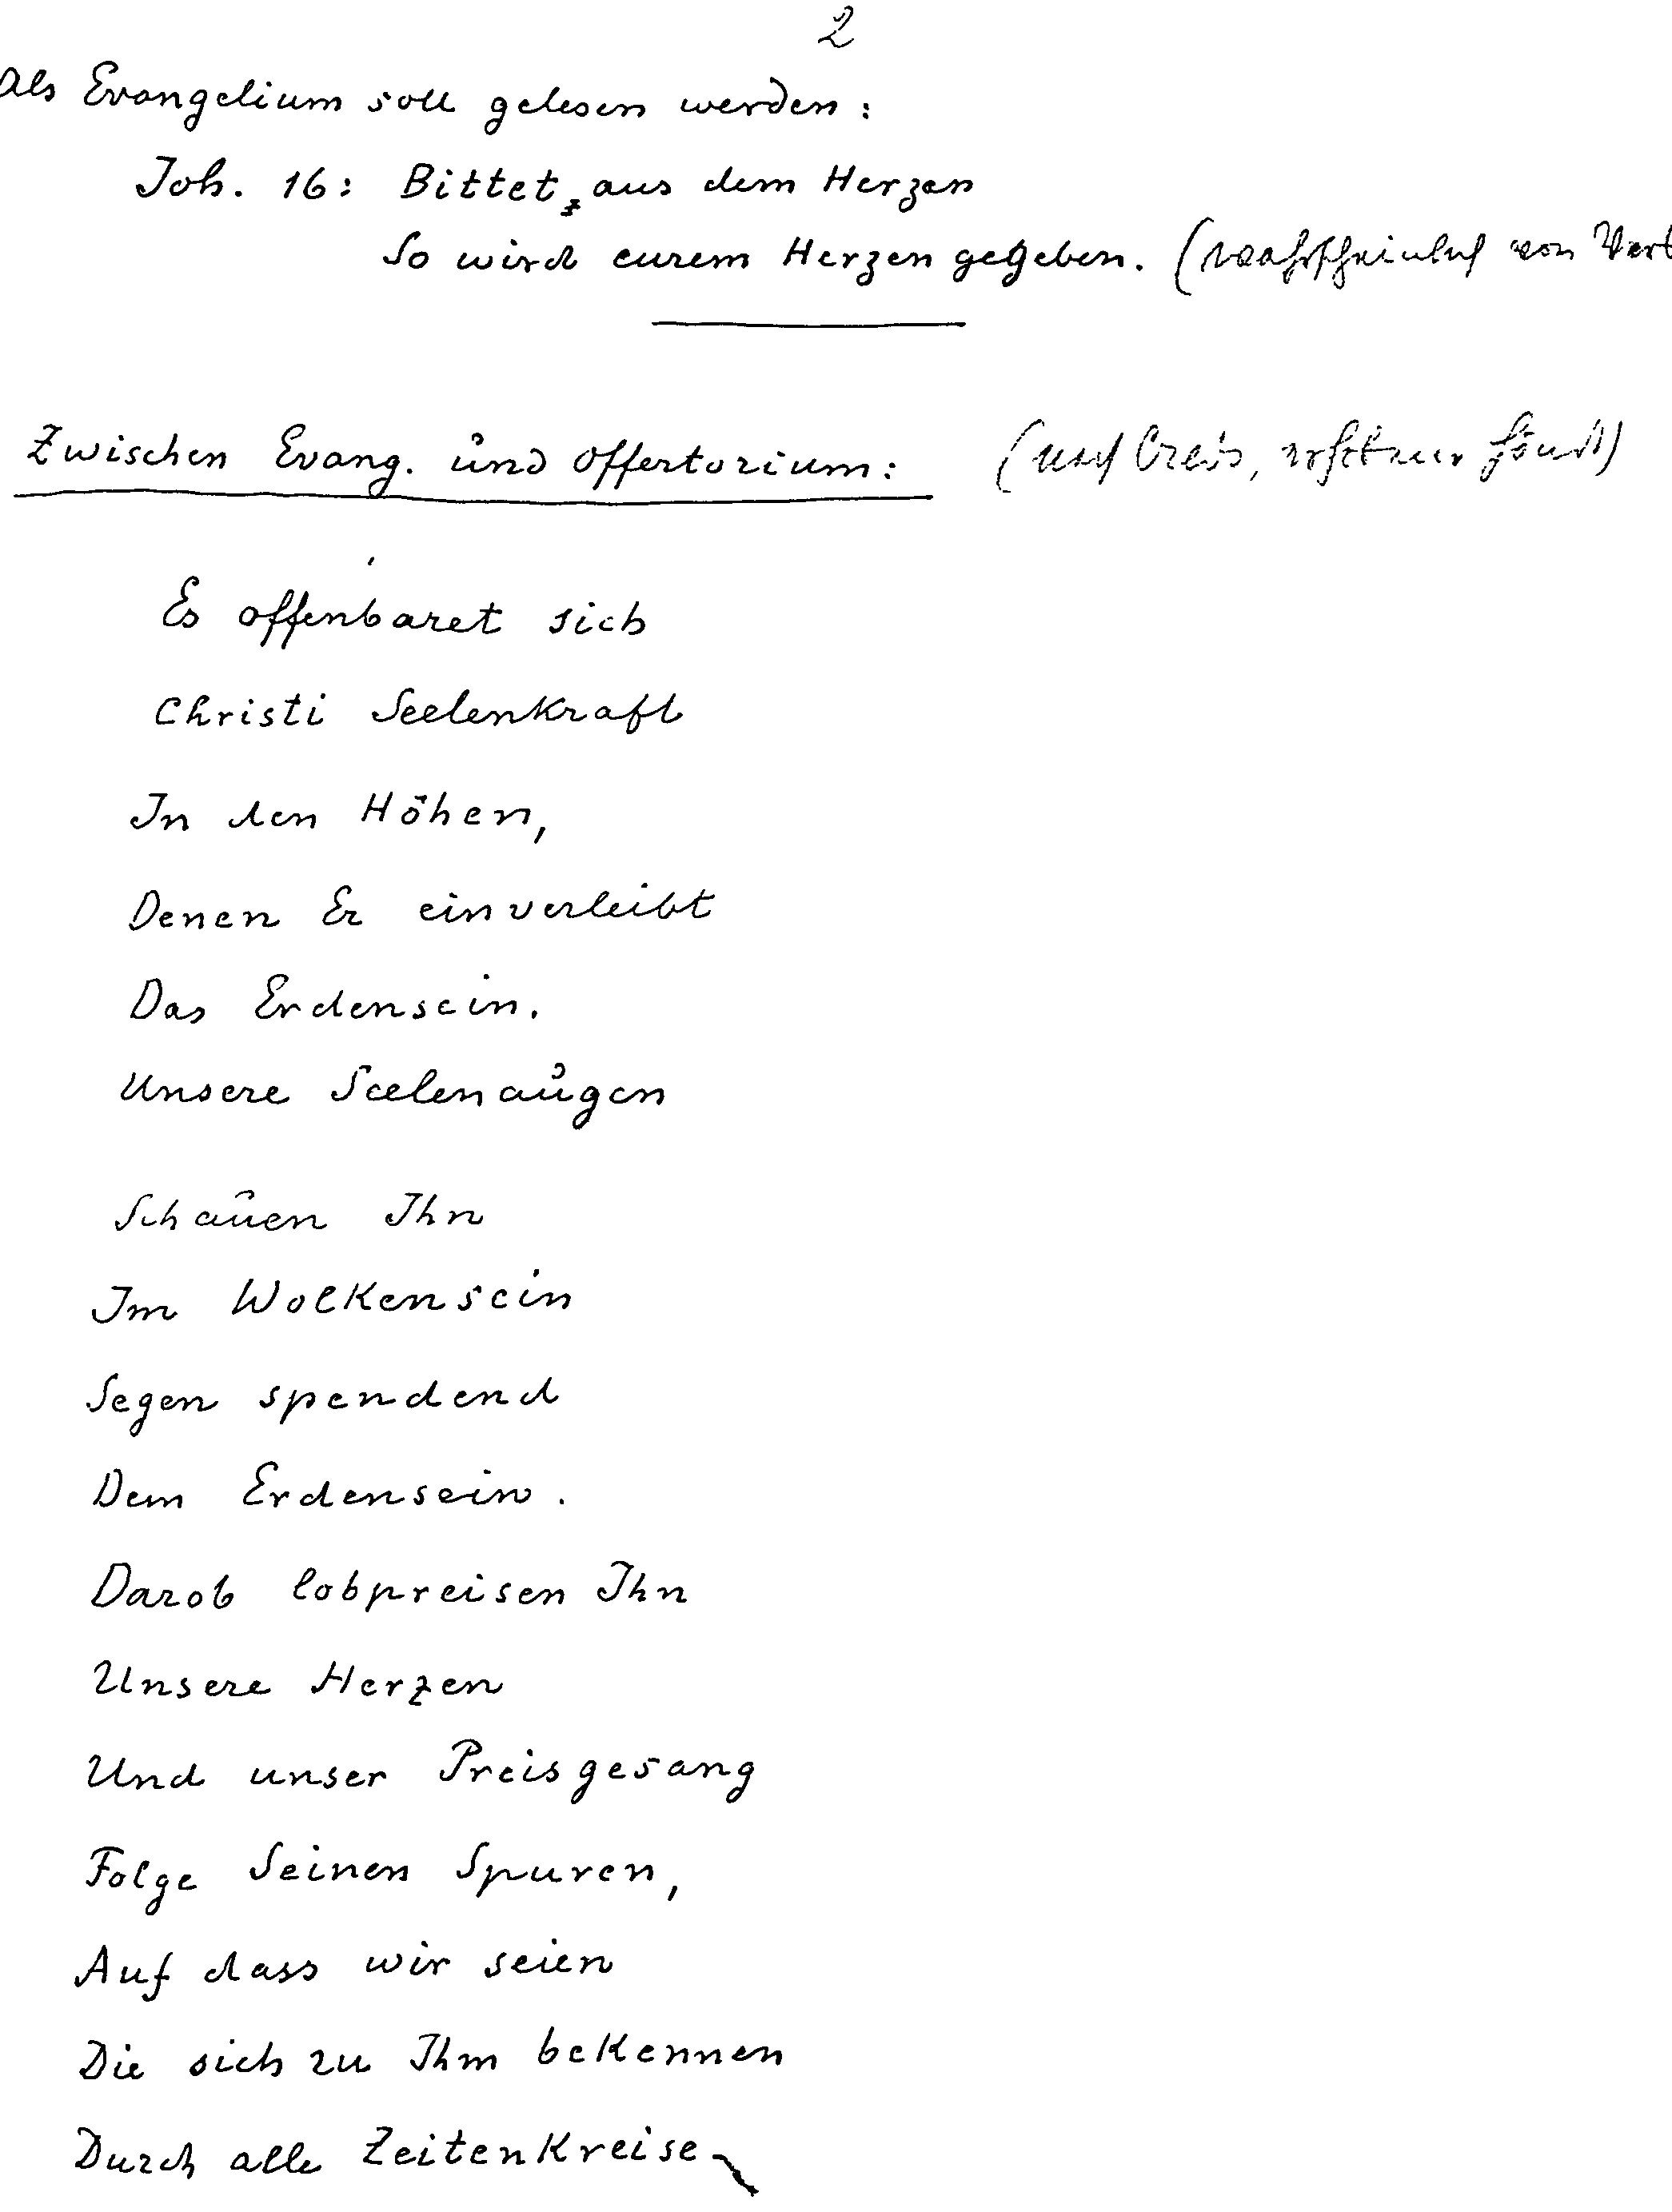 2
Als Evangelium soll gelesen werden:
Joh. 16: Bittet, aus dem Herzen
So wird eurem Herzen gegeben. (wahrscheinlich von Vert
Zwischen Evang. und Offertorium: (nach Credo,
Es offenbaret sich
Christi Seelenkraft
In den Höhen,
Denen Er einverleibt
Das Erdensein.
Unsere Seelenaugen
Schauen Ihn
Im Wolkensein
Segen spendend
Dem Erdensein.
Darob lobpreisen Ihn
Unsere Herzen
Und unser Preisgesang
Folge Seinen Spuren,
Auf dass wir seien
Die sich zu Ihm bekennen
Durch alle Zeitenkreise